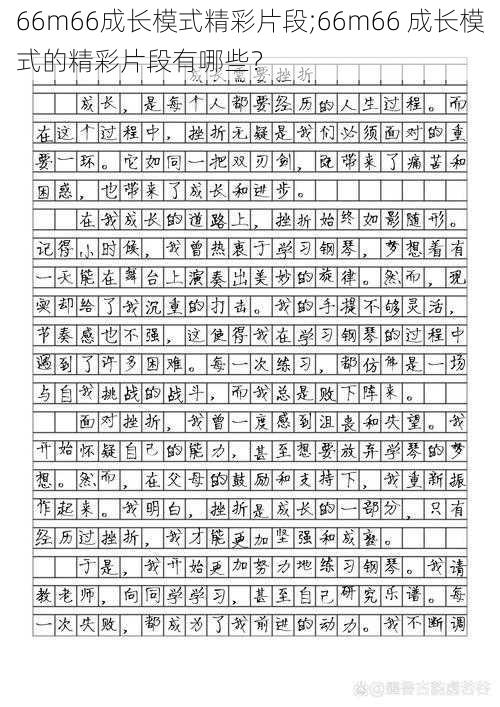 66m66成长模式精彩片段;66m66 成长模
式的精彩片段有哪些?
成长需要挫折
成长，是每个人都要经历的人生过程。而
在这个过程中，挫折无疑是我们必须面对的重
要一环。它如同一把双刃剑，既带来了痛苦和
困惑，也带来了成长和进步。
在我成长的道路上，挫折始终如影随形。
记得小时候，我曾热衷于学习钢琴，梦想着有
一天能在舞台上演奏出美妙的旋律。然而，现
实却给了我沉重的打击。我的手指不够灵活，
节奏感也不强，这使得我在学习钢琴的过程中
遇到了许多困难。每一次练习，都仿佛是一场
与自我挑战的战斗，而我总是败下阵来。
面对挫折，我曾一度感到沮丧和失望。我
开始怀疑自己的能力，甚至想要放弃学琴的梦
想。然而，在父母的鼓励和支持下，我重新振
作起来。我明白，挫折是成长的一部分，只有
经历过挫折，我才能更加坚强和成熟。
于是，我开始更加努力地练习钢琴。我请
教老师，向同学学习，甚至自己研究乐谱。每
一次失败，都成为了我前进的动力。我不断调